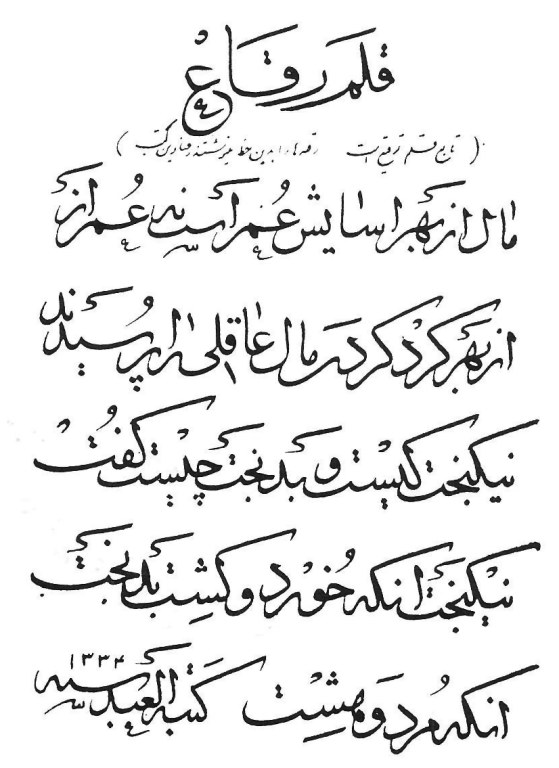 قلم رقاع
( تابع قلم توقیع است رقعه ها را بدین خط مینوشتند و عناوین کتب )
مال از بهر اسایش عمر است نه عمر از
از بهر کرد کردن مال عاقلی را پرسیدند
نیکبخت کیست و بدبخت چیست گفت
نیکبخت انکه خورد و کشت بدبخت
انکه مرد و هشت کتبه العبد سنه ۱۳۳۴